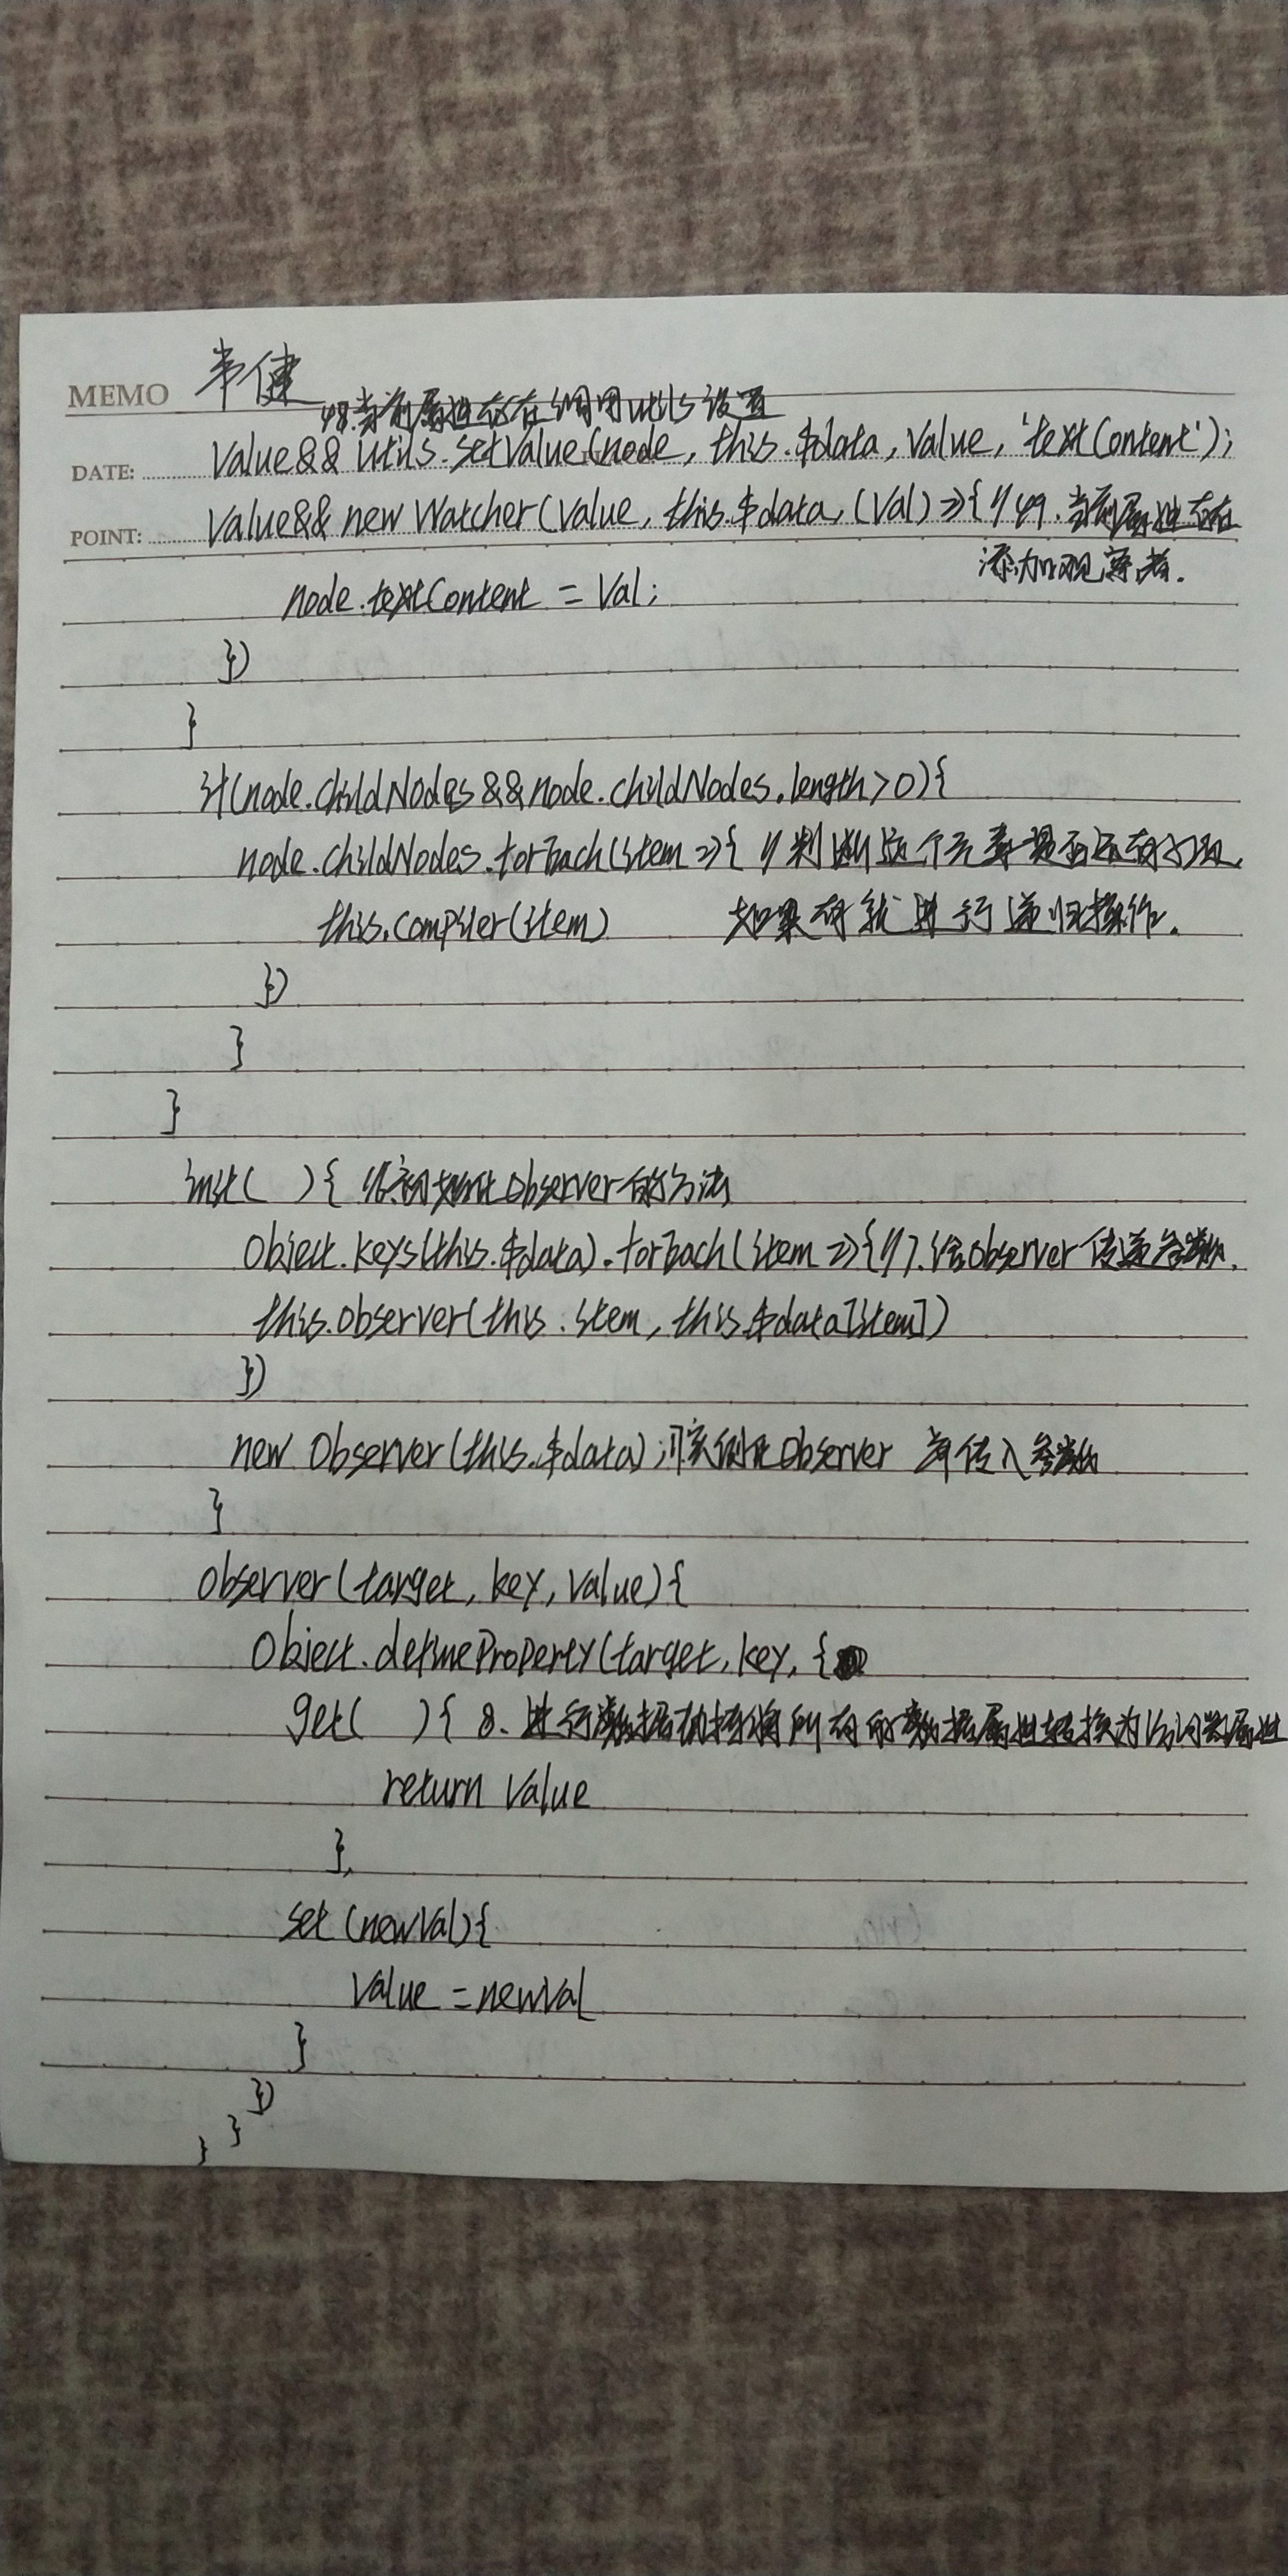 MEMO 韦健
48.当前属性存在调用utils设置
DATE: Value&& utils.setValue(node, this.$data, Value, 'textContent');
POINT: Value&& new Watcher(Value, this.$data, (Val)=>{ //49.当前属性存在
添加观察者.
node.textContent = Val;
})
}
if(node.childNodes&&node.childNodes.length>0){
node.childNodes.forEach(item=>{ //判断这个元素是否还有子级,
this.compiler(item) 如果有就进行递归操作.
})
}
}
init( ){ //6.初始化Observer的方法
Object.keys(this.$data).forEach(item=>{//7.给Observer传递参数.
this.observer(this.item, this.$data[item])
})
new Observer(this.$data);//实例化Observer 并传入参数
}
observer(target, key, value){
Object.defineProperty(target, key, {
get( ){ 8.进行数据劫持将所有的数据属性转换为访问器属性
return Value
},
set (newVal){
Value = newVal
}
})
}
}